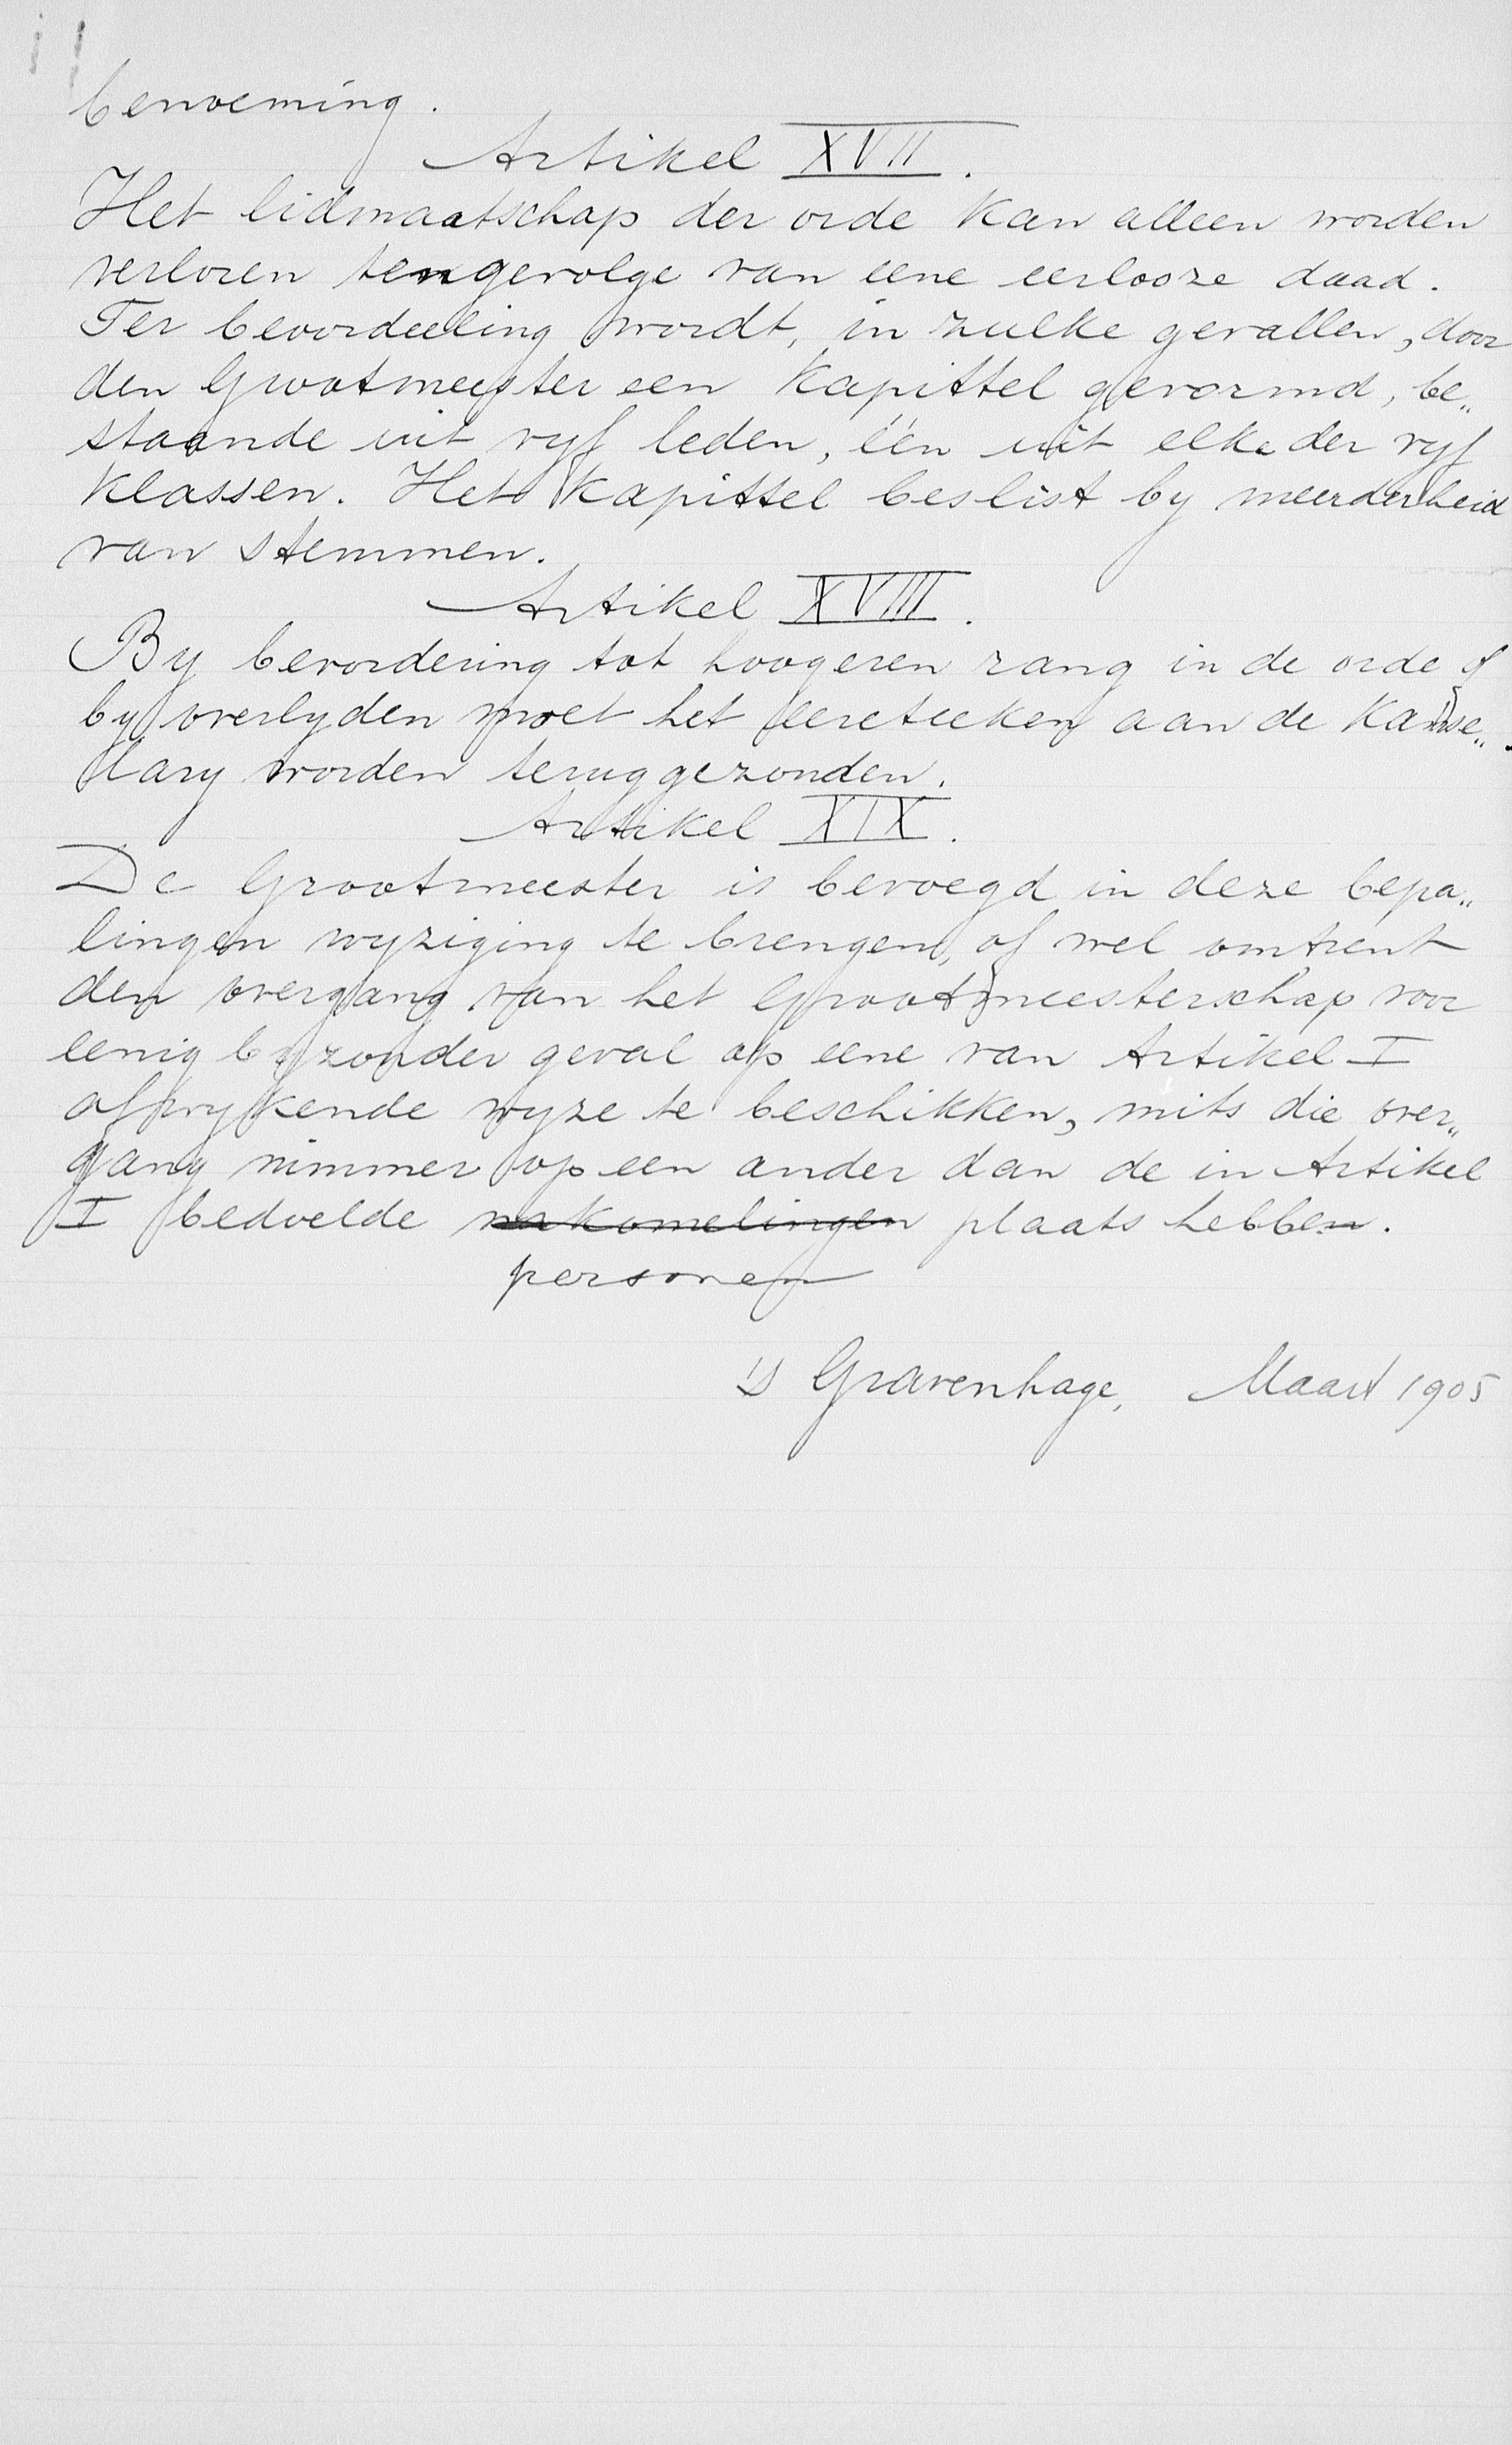 benoeming.
Artikel XVII.
Het lidmaatschap der orde kan alleen worden
verloren tengevolge van eene eerlooze daad.
Ter beoordeeling wordt, in zulke gevallen, door
den Grootmeester een Kapittel gevormd, be„
staande uit vyf leden, één uit elke der vyf
klassen. Het Kapittel beslist by meerderheid
van stemmen.
Artikel XVIII.
By bevordering tot hoogeren rang in de orde of
by overlyden moet het eereteeken aan de Kanse„
lary worden teruggezonden.
Artikel XIX.
De Grootmeester is bevoegd in deze bepa„
lingen wyziging te brengen, of wel omtrent
den overgang van het Grootmeesterschap voor
eenig byzonder geval op eene van Artikel I
afwykende wyze te beschikken, mits die over„
gang nimmer op een ander dan de in Artikel
I bedoelde nakomelingen plaats hebben.
personen
's Gravenhage, Maart 1905